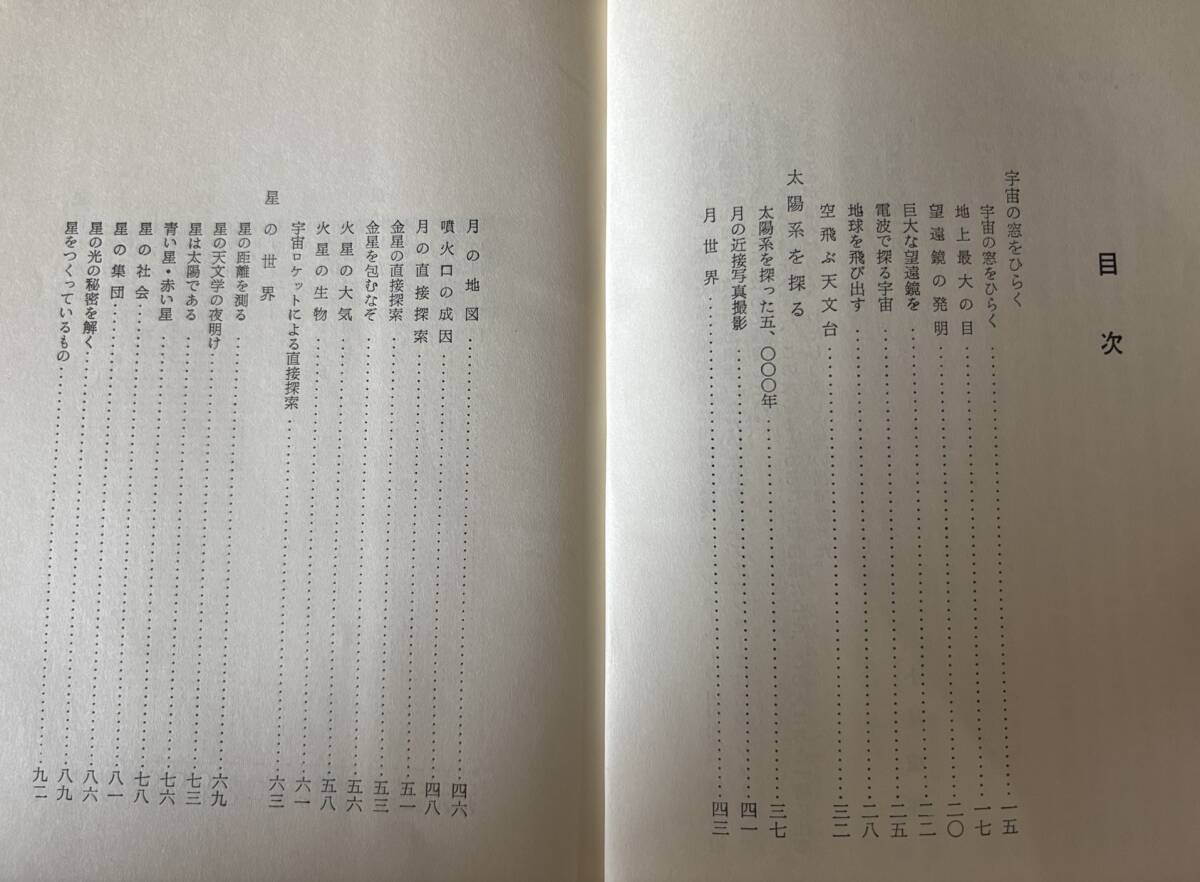 目次
宇宙の窓をひらく
宇宙の窓をひらく……一五
地上最大の目……一七
望遠鏡の発明……二〇
巨大な望遠鏡を……二二
電波で探る宇宙……二五
地球を飛び出す……二八
空飛ぶ天文台……三二
太陽系を探る
太陽系を探った五、〇〇〇年……三七
月の近接写真撮影……四一
月世界……四三
月の地図……四六
噴火口の成因……四八
月の直接探索……五一
金星の直接探索……五三
金星を包むなぞ……五六
火星の大気……五八
火星の生物……六一
宇宙ロケットによる直接探索……六三
星の世界
星の距離を測る……六九
星の天文学の夜明け……七三
星は太陽である……七六
青い星・赤い星……七八
星の社会……八一
星の集団……八六
星の光の秘密を解く……八九
星をつくっているもの……九二